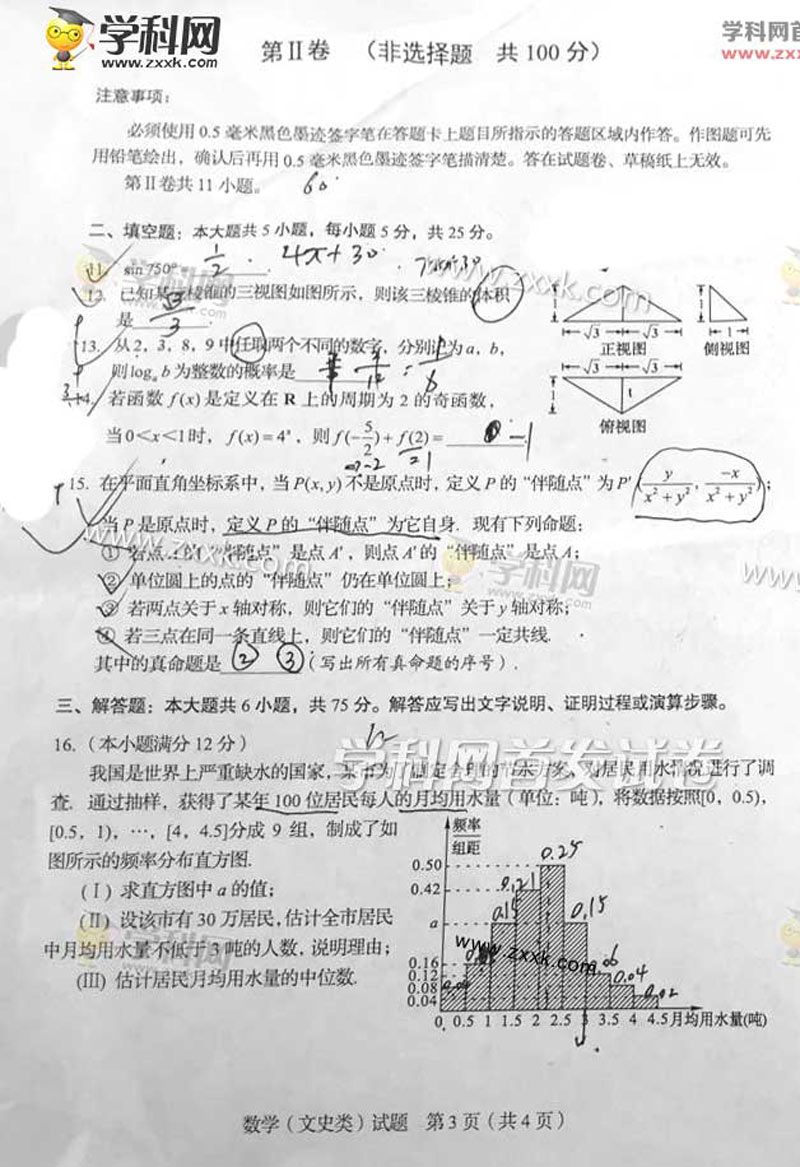 学科网
www.zxxk.com
学科网首
www.zxxk.
第Ⅱ卷 (非选择题 共100分)
注意事项:
必须使用0.5毫米黑色墨迹签字笔在答题卡上题目所指示的答题区域内作答。作图题可先
用铅笔绘出，确认后再用0.5毫米黑色墨迹签字笔描清楚。答在试题卷、草稿纸上无效。
第Ⅱ卷共11小题。
二、填空题：本大题共5小题，每小题5分，共25分。
11. sin750° 1/2
12. 已知某三棱锥的三视图如图所示，则该三棱锥的体积
是 √3/3 .
正视图
侧视图
俯视图
13. 从2，3，8，9中任取两个不同的数字，分别记为a，b，
则log_a b为整数的概率是 1/6
14. 若函数f(x)是定义在R上的周期为2的奇函数，
当0<x<1时，f(x)=4^x，则f(-5/2)+f(2)=
15. 在平面直角坐标系中，当P(x,y)不是原点时，定义P的“伴随点”为P′(y/(x²+y²), -x/(x²+y²));
当P是原点时，定义P的“伴随点”为它自身. 现有下列命题：
① 若点A的“伴随点”是点A′，则点A′的“伴随点”是点A；
② 单位圆上的点的“伴随点”仍在单位圆上；
③ 若两点关于x轴对称，则它们的“伴随点”关于y轴对称；
④ 若三点在同一条直线上，则它们的“伴随点”一定共线.
其中的真命题是 ② ③ (写出所有真命题的序号).
三、解答题：本大题共6小题，共75分。解答应写出文字说明、证明过程或演算步骤。
16. (本小题满分12分)
学科网首发试卷
我国是世界上严重缺水的国家，某市为了制定合理的节水方案，对居民用水情况进行了调
查. 通过抽样，获得了某年100位居民每人的月均用水量 (单位：吨)，将数据按照[0，0.5)，
[0.5，1)，…，[4，4.5]分成9组，制成了如
图所示的频率分布直方图.
(Ⅰ) 求直方图中a的值；
(Ⅱ) 设该市有30万居民，估计全市居民
中月均用水量不低于3吨的人数，说明理由；
(Ⅲ) 估计居民月均用水量的中位数.
频率
组距
0.50
0.42
a
0.16
0.12
0.08
0.04
0.25
0.21
0.15
0.15
0.04
0.02
0 0.5 1 1.5 2 2.5 3 3.5 4 4.5 月均用水量(吨)
www.zxxk.com
数学(文史类)试题 第3页(共4页)